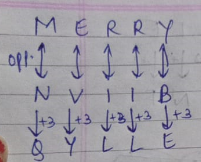 M E R R Y
opp.
N V I I B
+3 +3 +3 +3 +3
Q Y L L E